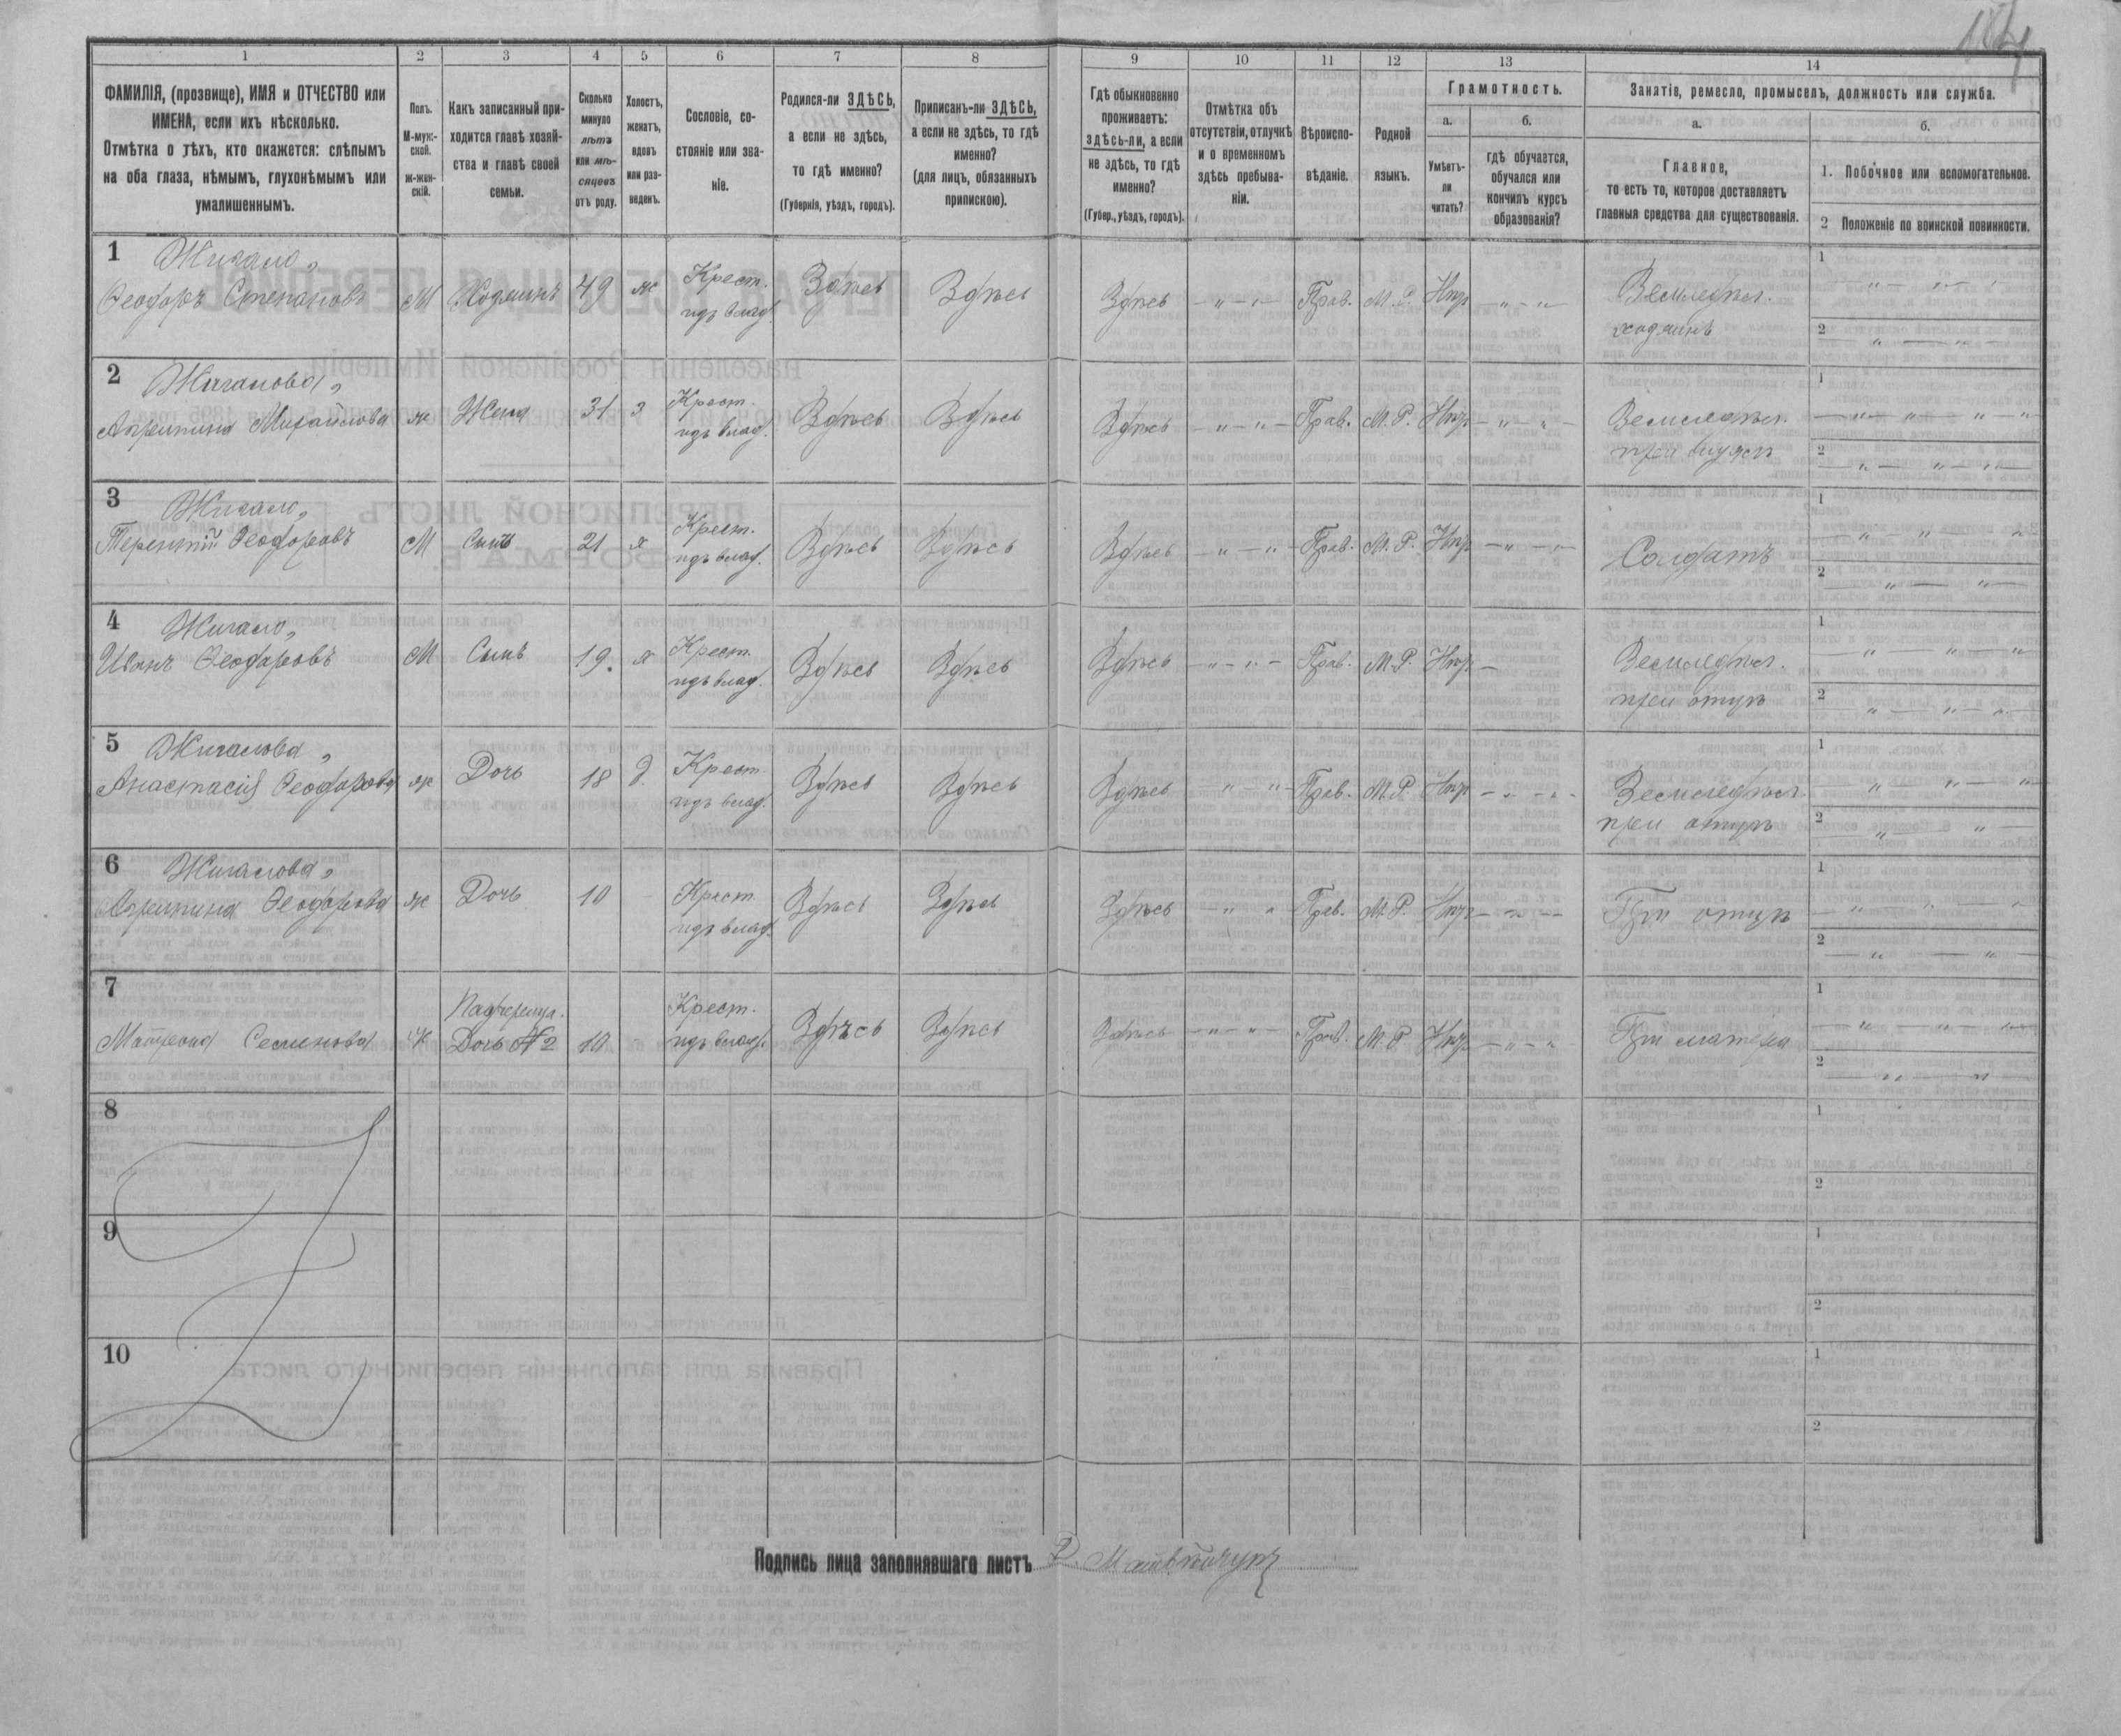 1 2 3 4 5 6 7 8 9 10 11 12 13 14
ФАМИЛІЯ, (прозвище), ИМЯ и ОТЧЕСТВО или
ИМЕНА, если ихъ нѣсколько.
Отмѣтка о тѣхъ, кто окажется: слѣпымъ
на оба глаза, нѣмымъ, глухонѣмымъ или
умалишеннымъ.
Полъ.
М-муж-
ской.
ж-жен-
скій.
Какъ записанный при-
ходится главѣ хозяй-
ства и главѣ своей
семьи.
Сколько
минуло
лѣтъ
или мѣ-
сяцевъ
отъ роду.
Холостъ,
женатъ,
вдовъ
или раз-
веденъ.
Сословіе, со-
стояніе или зва-
ніе.
Родился-ли ЗДѢСЬ,
а если не здѣсь,
то гдѣ именно?
(Губернія, уѣздъ, городъ).
Приписанъ-ли ЗДѢСЬ,
а если не здѣсь, то гдѣ
именно?
(для лицъ, обязанныхъ
припискою).
Гдѣ обыкновенно
проживаетъ:
здѣсь-ли, а если
не здѣсь, то гдѣ
именно?
(Губер., уѣздъ, городъ).
Отмѣтка объ
отсутствіи, отлучкѣ
и о временномъ
здѣсь пребыва-
ніи.
Вѣроиспо-
вѣданіе.
Родной
языкъ.
Грамотность.
а.
Умѣетъ-
ли
читать?
б.
гдѣ обучается,
обучался или
кончилъ курсъ
образованія?
Занятіе, ремесло, промыселъ, должность или служба.
а.
Главное,
то есть то, которое доставляетъ
главныя средства для существованія.
б.
1. Побочное или вспомогательное.
2 Положеніе по воинской повинности.
1 Жигало,
Ѳеодоръ Степановъ М Хозяинъ 49 ж Крест. Здѣсь Здѣсь Здѣсь — „ — „ — Прав. М. Р. Нтр — „ — „ Земледѣл.
изъ влад. хозяинъ
1
2
2 Жигалова,
Агрипина Михайлова ж Жена 31 з Крест. Здѣсь Здѣсь Здѣсь — „ — „ — Прав. М. Р. Нтр — „ — „ — Земледѣл.
изъ влад. при мужѣ
1
2
3 Жигало,
Терентій Ѳеодоровъ М Сынъ 21 х Крест. Здѣсь Здѣсь Здѣсь — „ — „ — Прав. М. Р. Нтр — „ — „ Солдатъ
изъ влад.
1
2
4 Жигало,
Иванъ Ѳеодоровъ М Сынъ 19. х Крест. Здѣсь Здѣсь Здѣсь — „ — „ — Прав. М. Р. Нтр — Земледѣл.
изъ влад. при отцѣ
1
2
5 Жигалова,
Анастасія Ѳеодорова ж Дочь 18 д. Крест. Здѣсь Здѣсь Здѣсь — „ — „ — Прав. М. Р. Нтр — „ — „ — Земледѣл.
изъ влад. при отцѣ
1
2
6 Жигалова,
Агрипина Ѳеодорова ж Дочь 10 Крест. Здѣсь Здѣсь Здѣсь — „ „ Прав. М. Р. Нтр — „ — При отцѣ
изъ влад.
1
2
7 Падчерица. Крест.
Матрона Семенова ж Дочь № 2 10 - изъ влад. Здѣсь Здѣсь Здѣсь — „ — „ — Прав. М. Р. Нтр — „ — „ При матери
1
2
8
1
2
9
1
2
10
1
2
Подпись лица заполнявшаго листъ